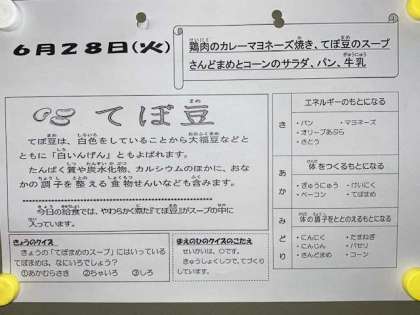 6月28日(火)
鶏肉のカレーマヨネーズ焼き、てぼ豆のスープ
さんどまめとコーンのサラダ、パン、牛乳
てぼ豆
てぼ豆は、白色をしていることから大福豆などと
ともに「白いんげん」ともよばれます。
たんぱく質や炭水化物、カルシウムのほかに、おな
かの調子を整える食物せんいなども含みます。
今日の給食では、やわらかく煮た『てぼ豆』がスープの中に
入っています。
きょうのクイズ
きょうの「てぼまめのスープ」にはいっている
てぼまめは、なにいろでしょう？
①あかむらさき　②ちゃいろ　③しろ
まえのひのクイズのこたえ
せいかいは、〇です。
きゅうしょくしつで、てづくり
しています。
き
エネルギーのもとになる
・パン　・マヨネーズ
・オリーブあぶら
・さとう
あか
体をつくるもとになる
・ぎゅうにゅう　・けいにく
・ベーコン　・てぼまめ
みどり
体の調子をととのえるもとになる
・にんにく　・たまねぎ
・にんじん　・パセリ
・さんどまめ　・コーン